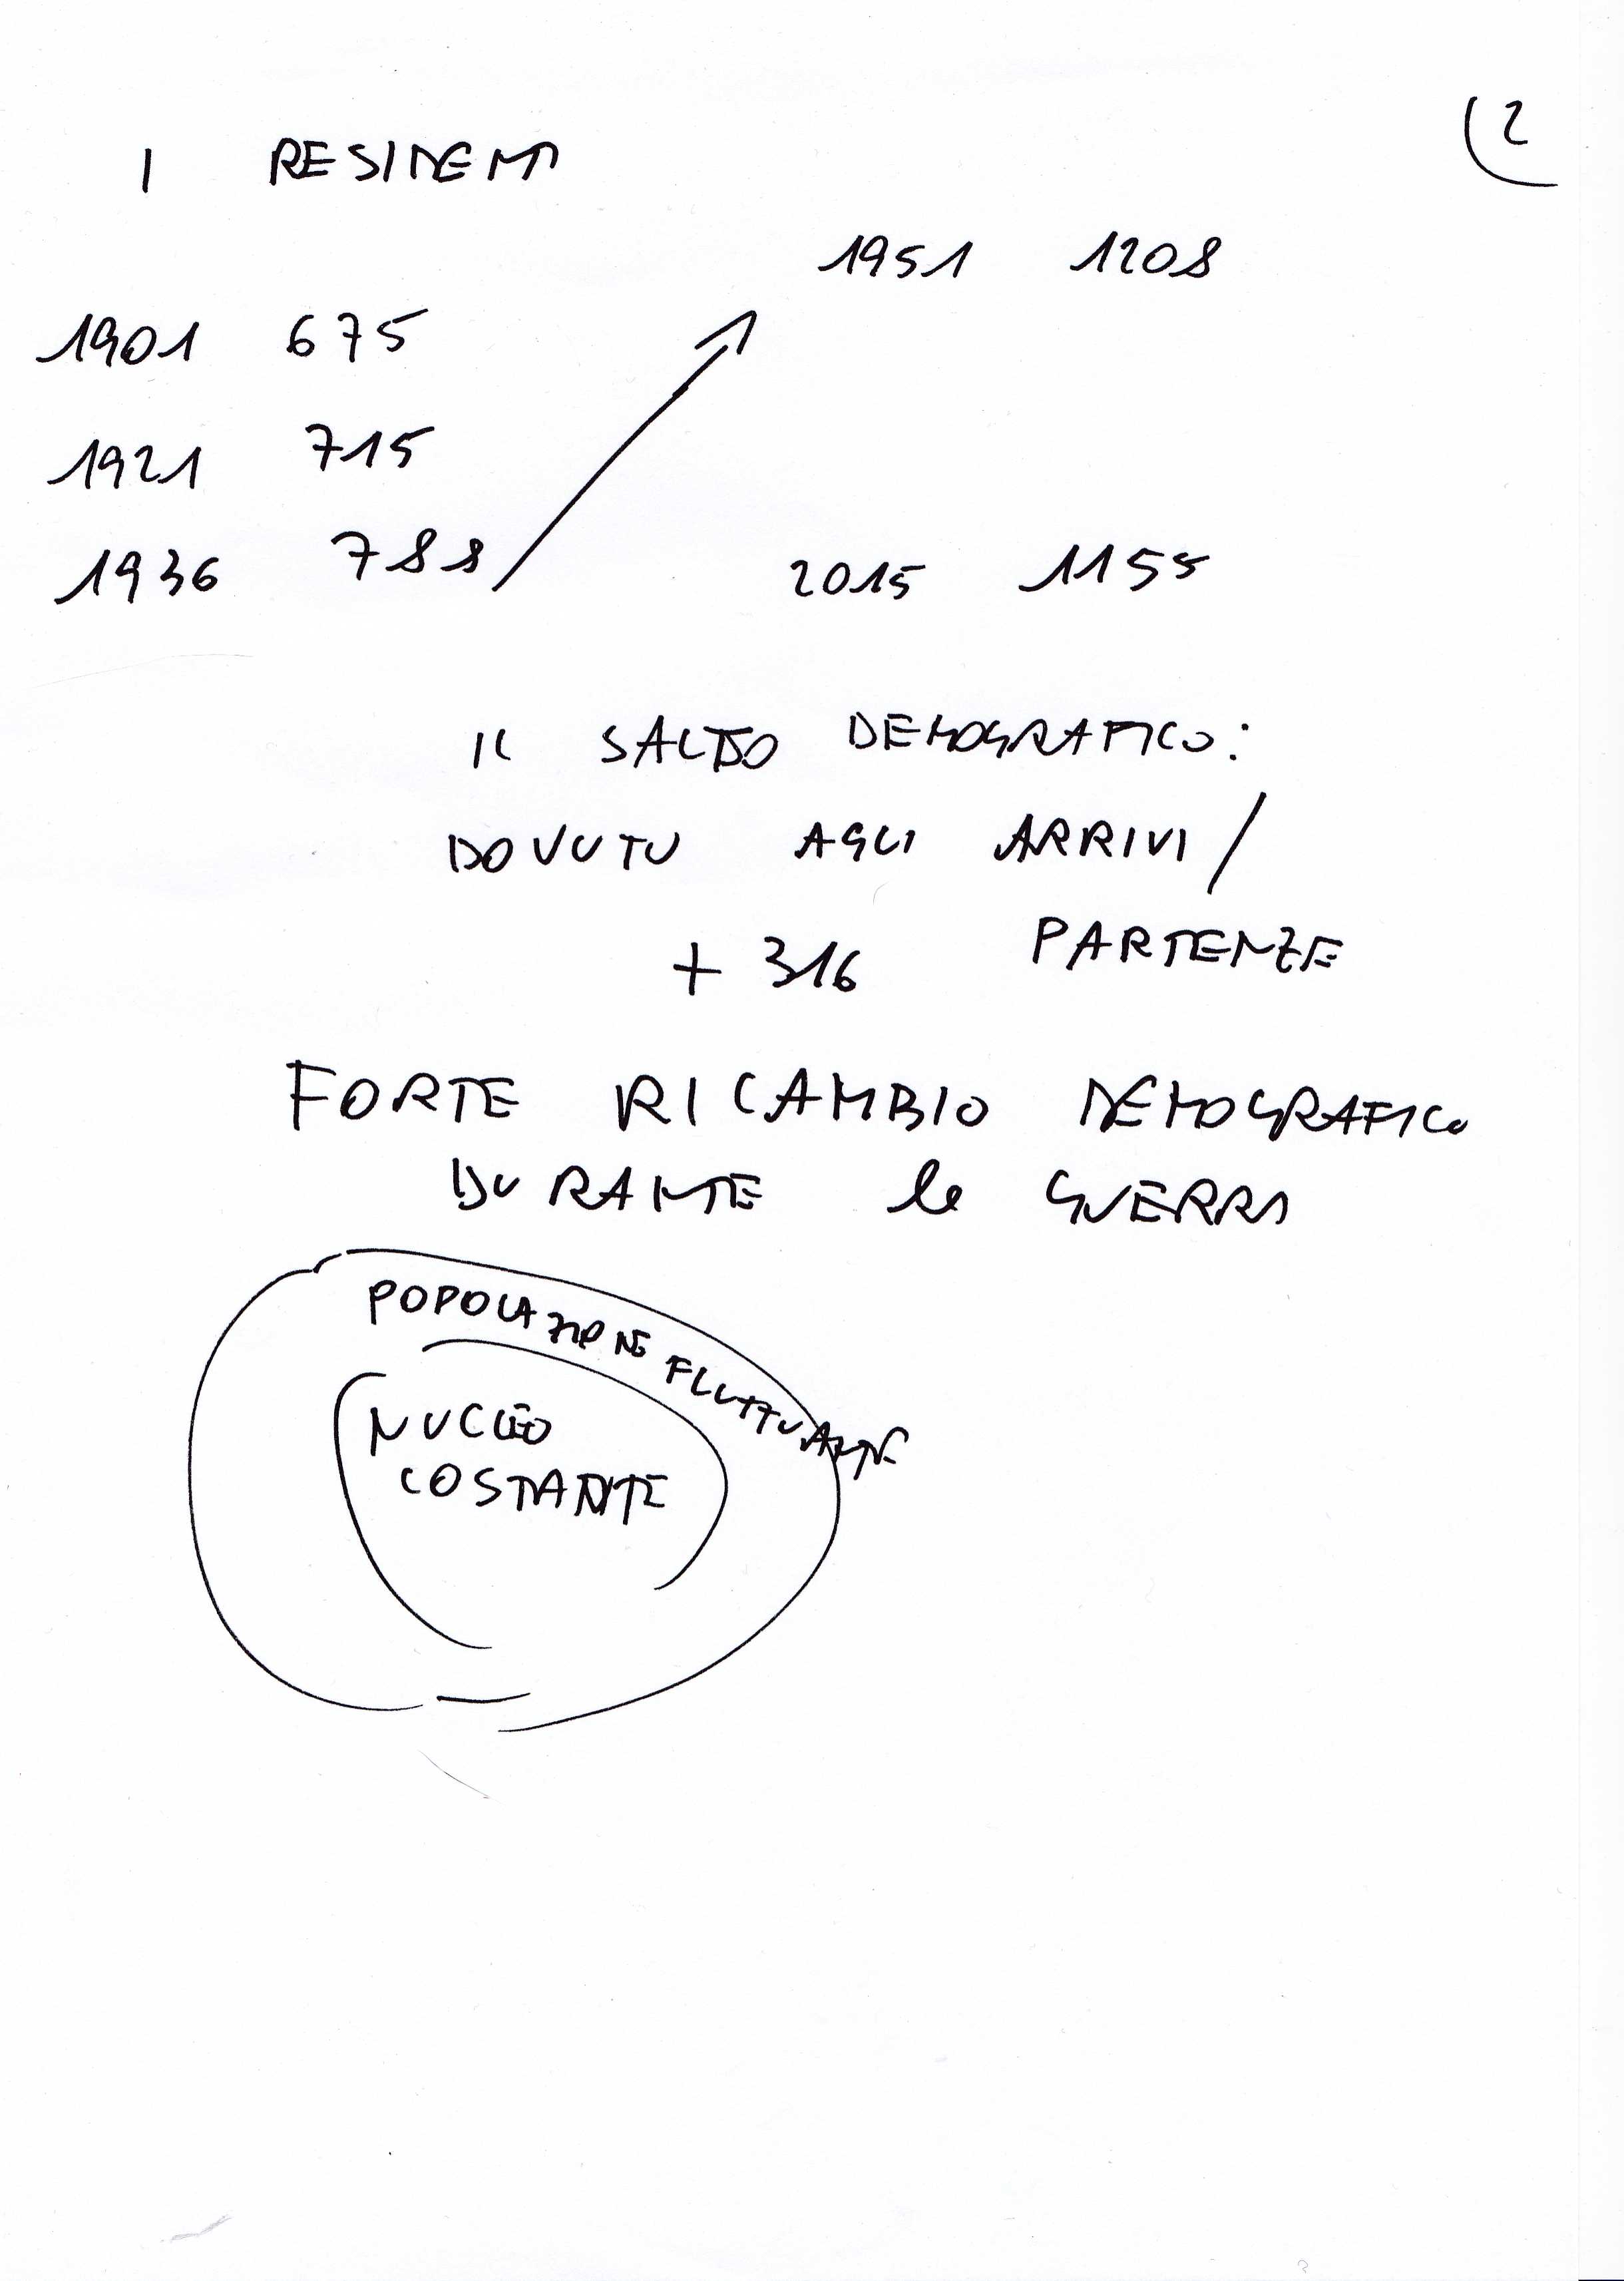 2
I RESIDENTI
1951 1208
1901 675
1921 715
1936 788
2015 1155
IL SALDO DEMOGRAFICO:
DOVUTO AGLI ARRIVI /
+ 316 PARTENZE
FORTE RICAMBIO DEMOGRAFICO
DURANTE la GUERRA
POPOLAZIONE FLUTTUANTE
NUCLEO
COSTANTE